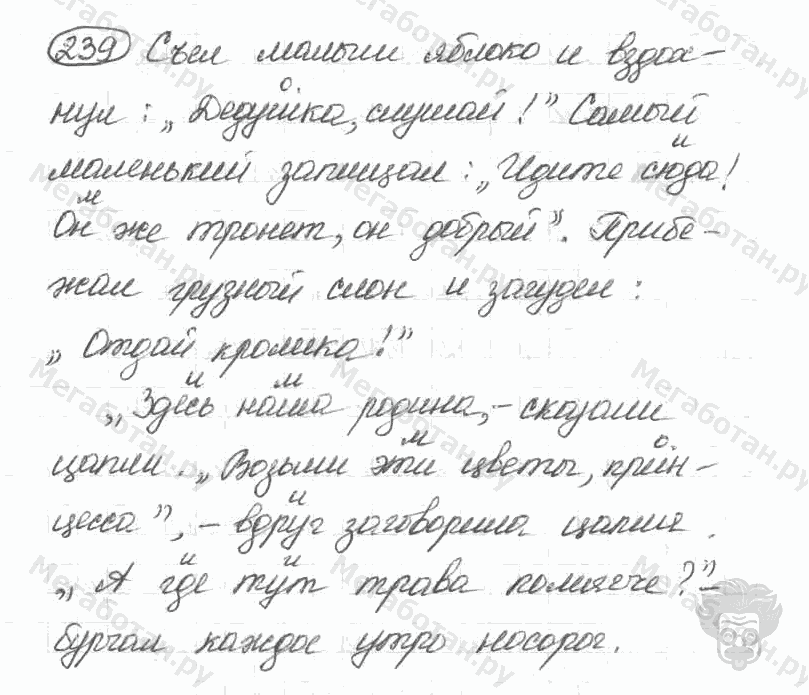 239 Съел малыш яблоко и вздох-
нул: „Дедушка, слушай!" Самый
маленький запищал: „Идите сюда!
Он же тронет, он добрый". Прибе-
жал грузный слон и загудел:
„Отдай кролика!"
„Здесь наша родина, - сказали
цапли. „Возьми эти цветы, прин-
цесса", - вдруг заговорила цапля.
„А где тут трава помягче?" -
бурчал каждое утро носорог.